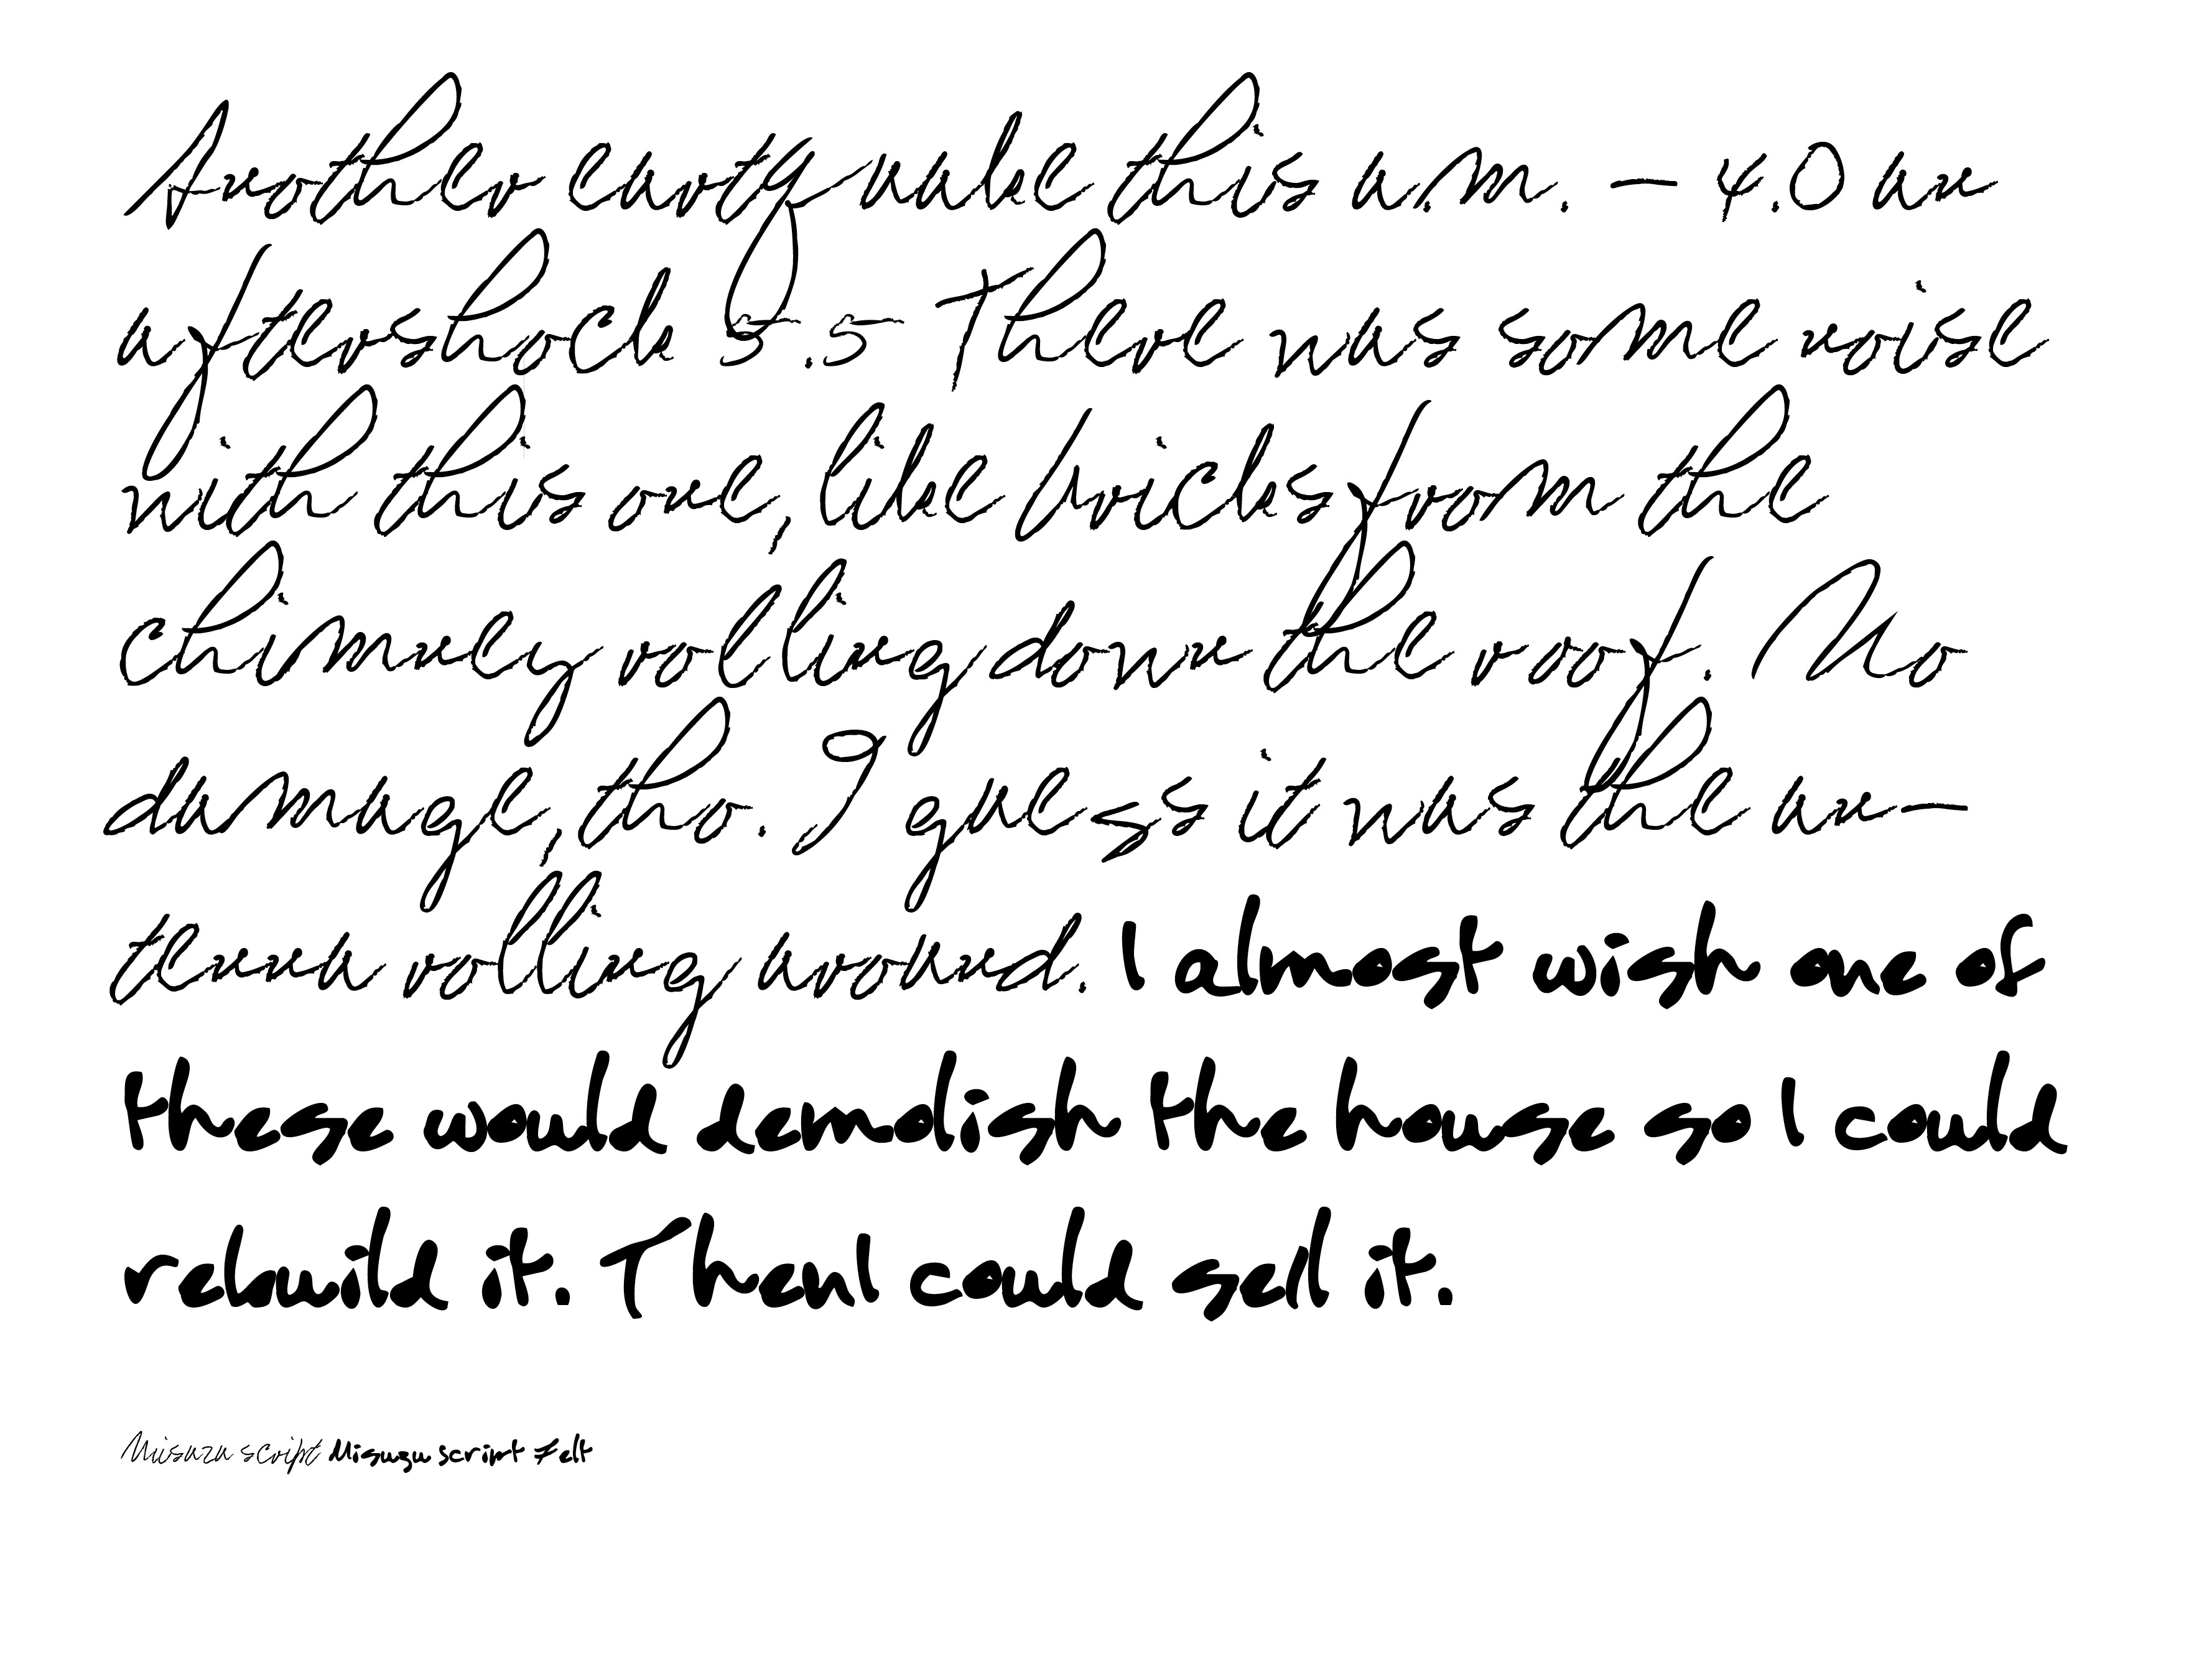 Another earthquake this a.m. — 4.0 an
aftershock 5.5 There was some noise
with this one, like bricks from the
chimney rolling down the roof. No
damage, tho. I guess it was the an—
tenna rolling around. I almost wish one of
these would demolish the house so I could
rebuild it. Then I could sell it.
Misuzu script Misuzu script Felt